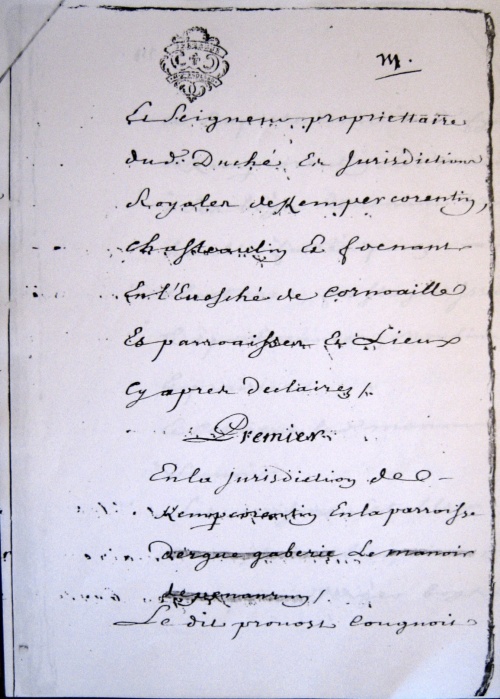 m.
Le Seigneur propriettaire
dud. Duché Es Jurisdictions
Royales de Kempercorentin,
Chasteaulin Et foenant
En l'Evesché de Cornoaille
Es parroaisses Et Lieux
Cy apres declairez /.
Premier.
En la Jurisdiction de
Kempcorentin En la parroisse
dergue gaberic Le manoir
de penanrun /
Le dit provost cougnois